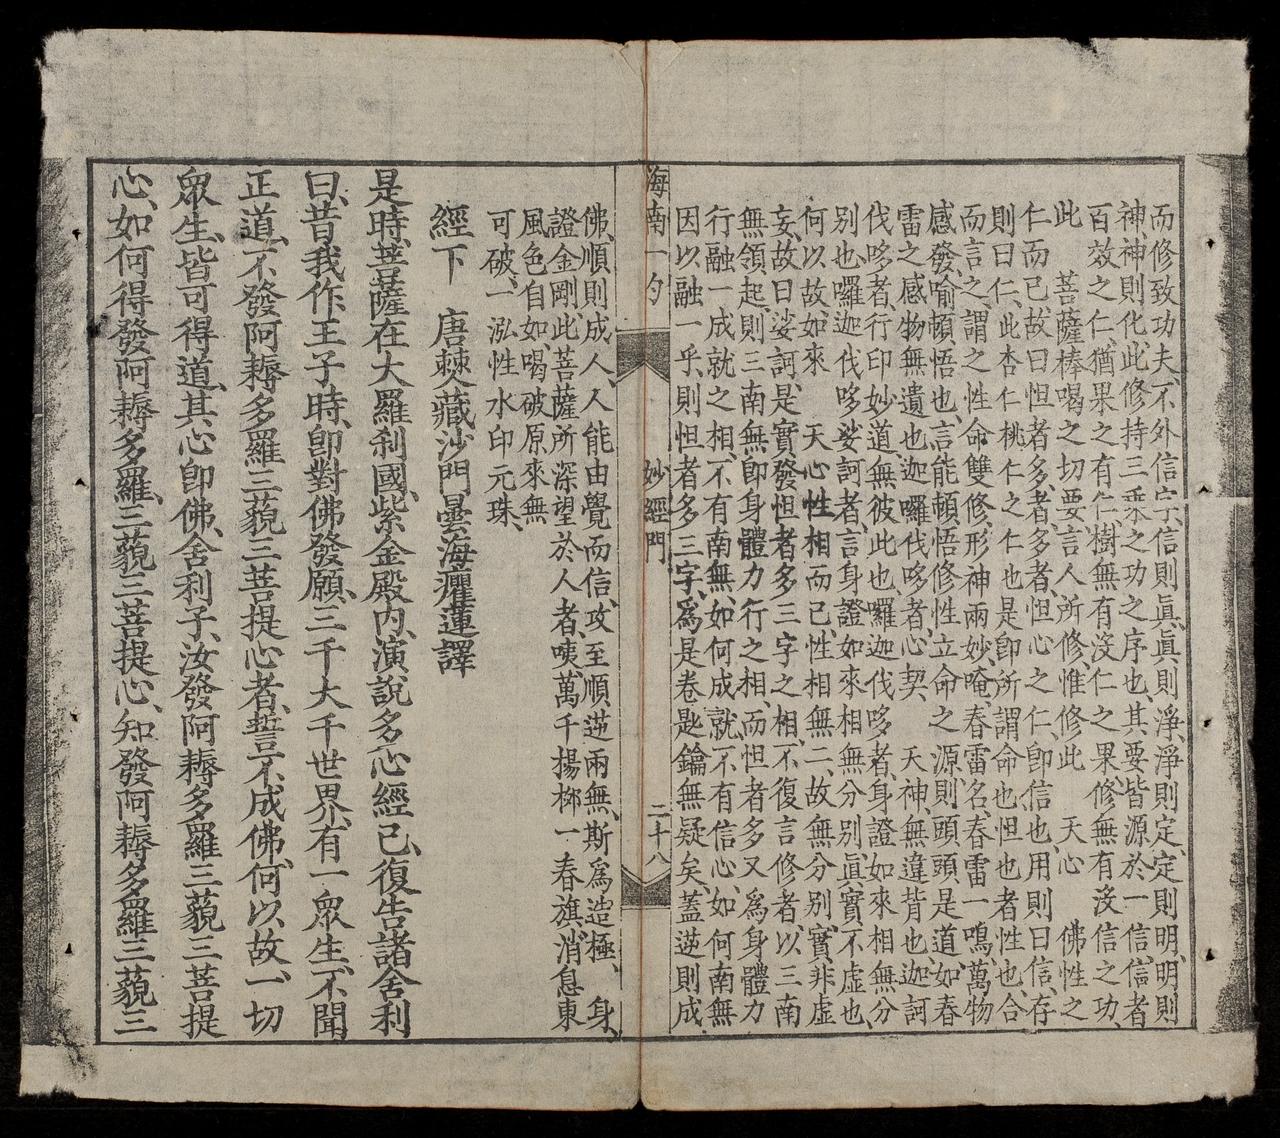 而修致功夫、不外信字、信則眞、眞則淨、淨則定、定則明、明則
神、神則化、此修持三乘之功之序也、其要皆源於一信、信者
百效之仁、猶果之有仁、樹無有沒仁之果、修無有沒信之功、
此　菩薩棒喝之切要、言人所修、惟修此　天心　佛性之
仁而已、故曰怛者多、者多者、怛心之仁、卽信也、用則曰信、存
則曰仁、此杏仁桃仁之仁也、是卽所謂命也、怛也者性也、合
而言之、謂之性命雙修、形神兩妙、唵、春雷名、春雷一鳴、萬物
感發、喻頓悟也、言能頓悟修性立命之源、則頭頭是道、如春
雷之感物無遺也、迦囉伐哆者、心契　天神、無違背也、迦訶
伐哆者、行印妙道、無彼此也、囉迦伐哆者、身證如來相無分
別也、囉迦伐哆娑訶者、言身證如來相無分別、眞實不虛也、
何以故、如來　天心性相而已、性相無二、故無分別、實非虛
妄、故曰娑訶、是實發怛者多三字之相、不復言修者、以三南
無領起、則三南無卽身體力行之相、而怛者多又爲身體力
行融一成就之相、不有南無、如何成就、不有信心、如何南無
因以融一乎、則怛者多三字、爲是卷匙鑰無疑矣、蓋逆則成
海南一勺　妙經門　二十八
佛、順則成人、人能由覺而信、攻至順逆兩無、斯爲造極、　身
證金剛、此菩薩所深望於人者、咦、萬千楊柳一春旗、消息東
風色自如、喝破原來無
可破、一泓性水印元珠、
經下　唐三藏沙門曇海癯蓮譯
是時、菩薩在大羅刹國、紫金殿內、演說多心經已、復告諸舍利
曰、昔我作王子時、卽對佛發願、三千大千世界、有一眾生、不聞
正道、不發阿耨多羅三藐三菩提心者、誓不成佛、何以故、一切
眾生、皆可得道、其心卽佛、舍利子、汝發阿耨多羅三藐三菩提
心、如何得發阿耨多羅三藐三菩提心、知發阿耨多羅三藐三